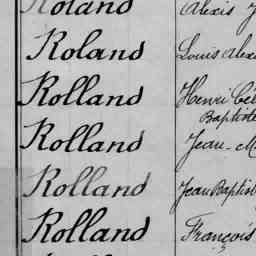 Roland Alexis
Roland Louis
Rolland Henri
Baptiste
Rolland Jean-
Rolland Jean
Rolland François